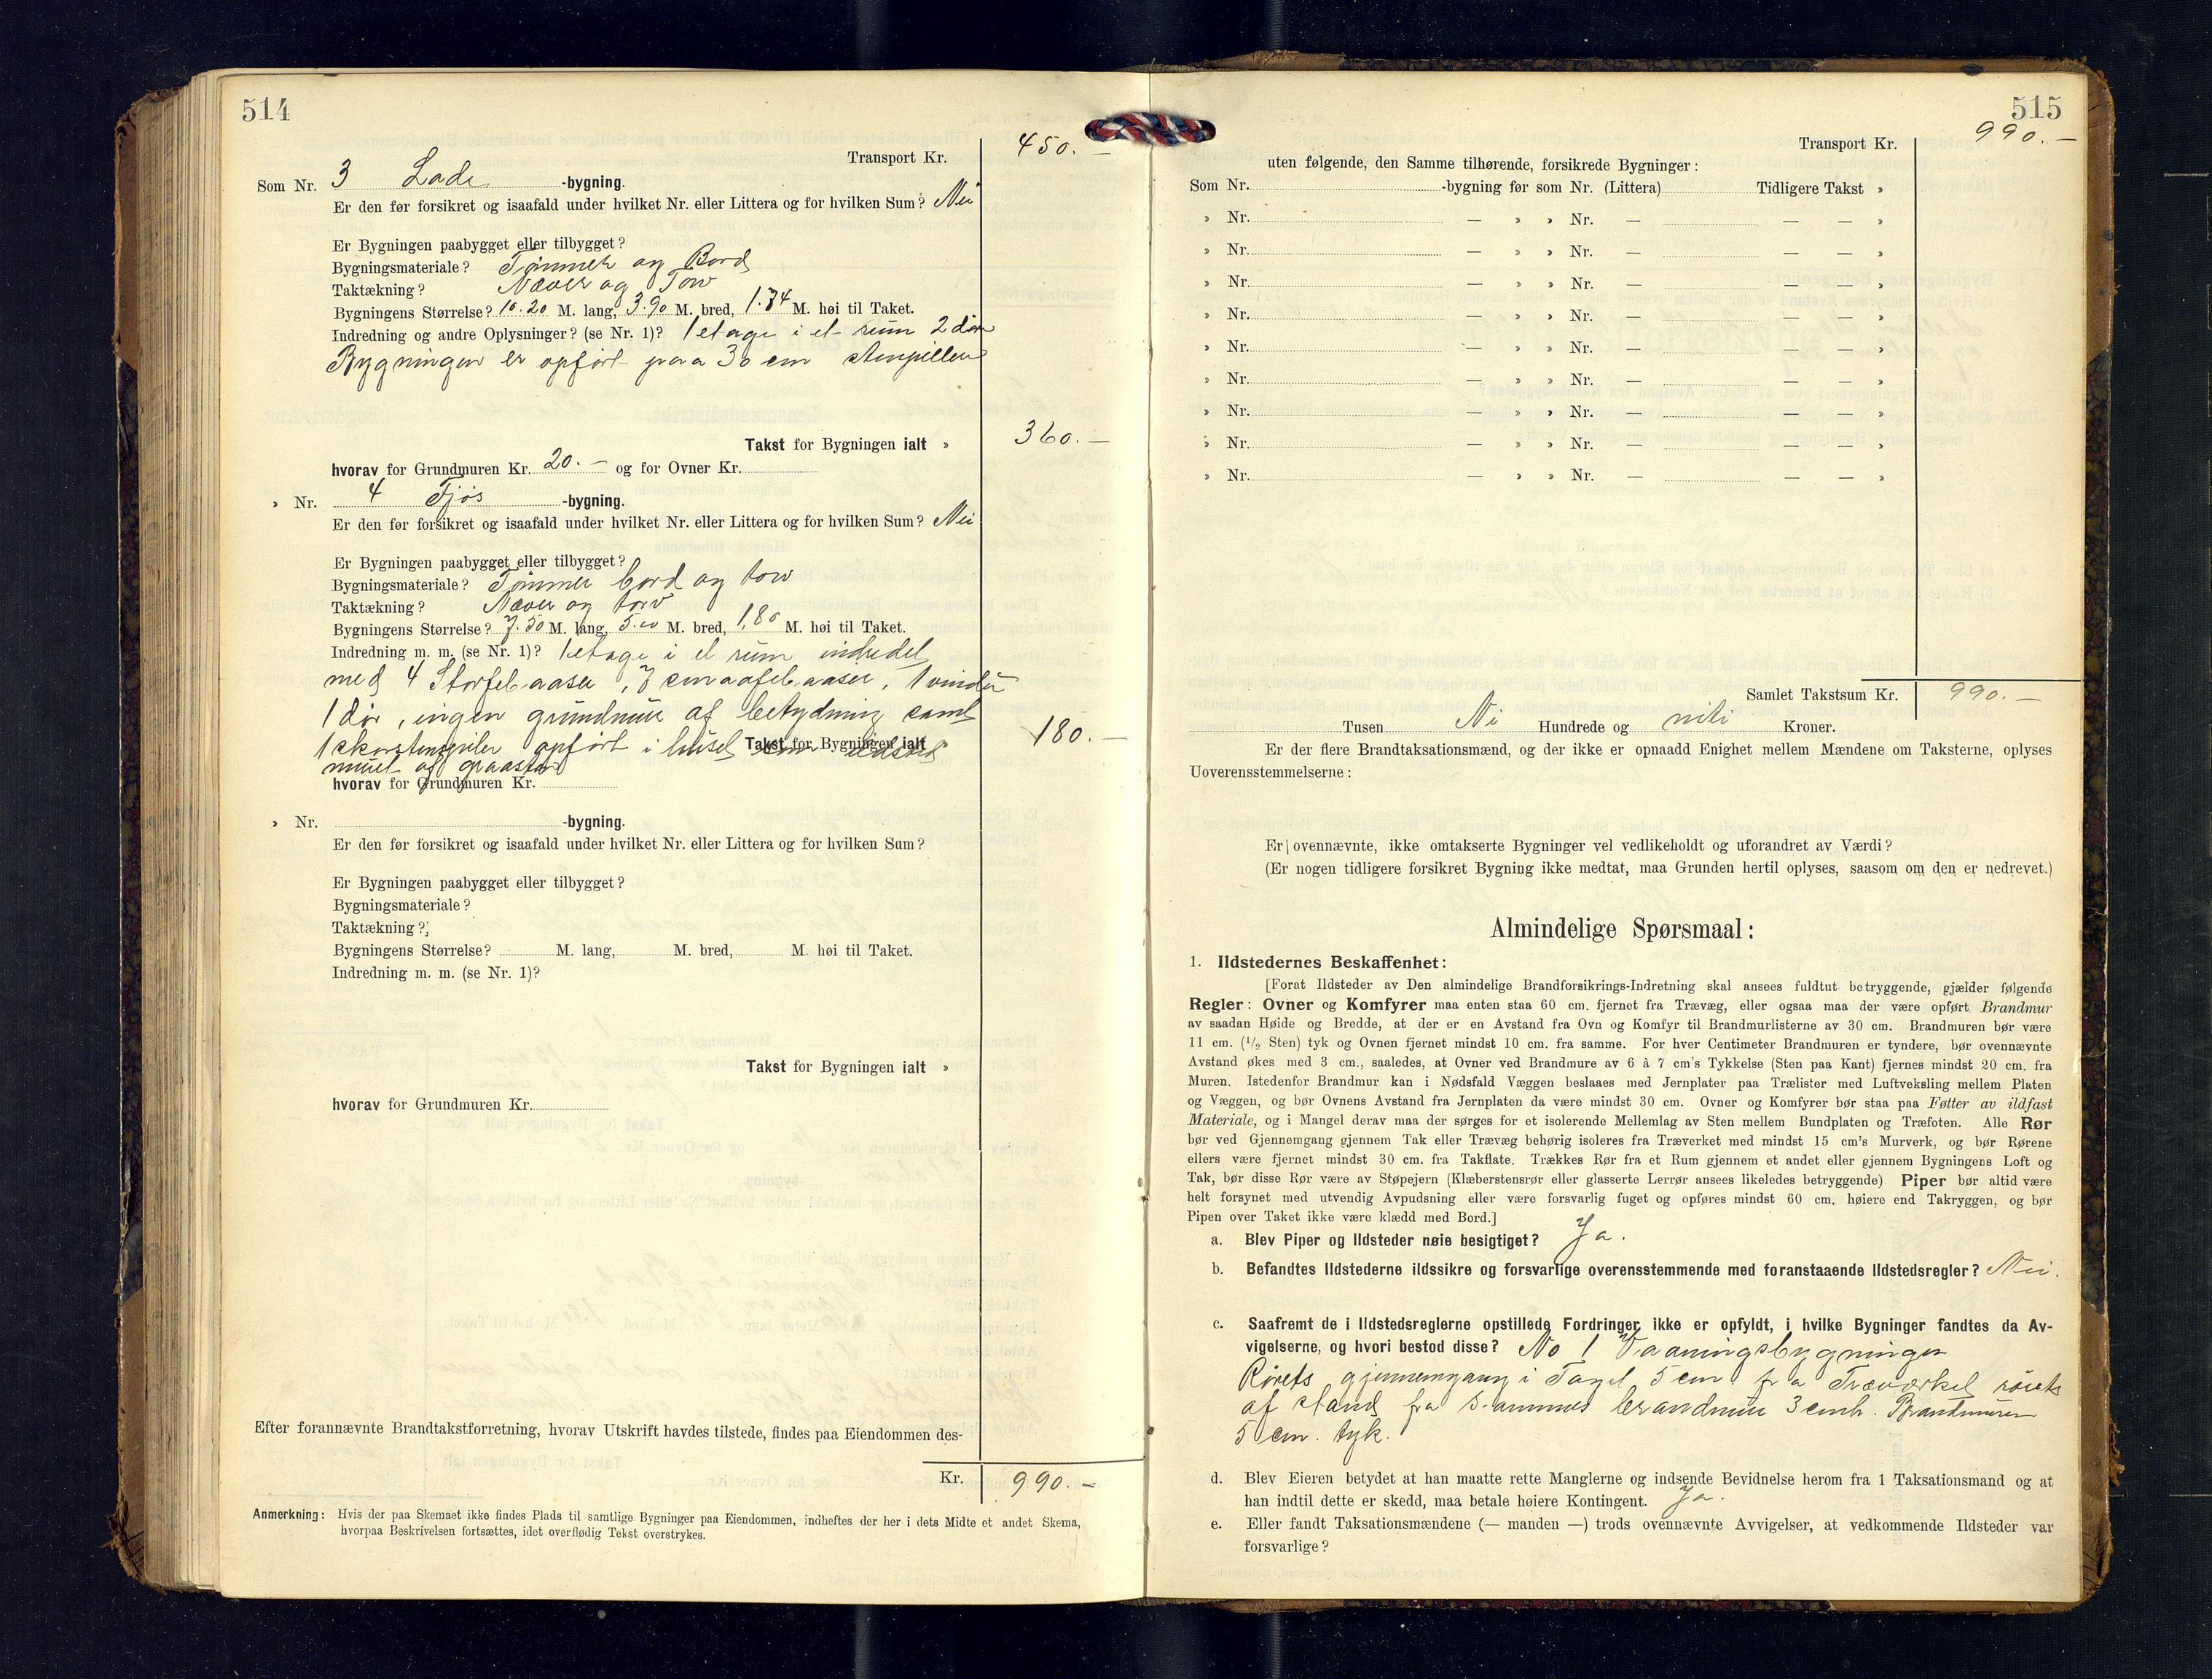 514
Transport Kr. 450.—
Som Nr. 3 Lade -bygning.
Er den før forsikret og isaafald under hvilket Nr. eller Littera og for hvilken Sum? Nei
Er Bygningen paabygget eller tilbygget?
Bygningsmateriale? Tømmer og Bord
Taktækning? Næver og Torv
Bygningens Størrelse? 10.20 M. lang, 3.90 M. bred, 1.74 M. høi til Taket.
Indredning og andre Oplysninger? (se Nr. 1)? 1 etage i et rum 2 dør
Bygningen er opført paa 30 cm stenpillere
Takst for Bygningen ialt » 360.—
hvorav for Grundmuren Kr. 20.— og for Ovner Kr.
» Nr. 4 Fjøs -bygning.
Er den før forsikret og isaafald under hvilket Nr. eller Littera og for hvilken Sum? Nei
Er Bygningen paabygget eller tilbygget?
Bygningsmateriale? Tømmer bord og torv
Taktækning? Næver og torv
Bygningens Størrelse? 7.50 M. lang, 5.00 M. bred, 1,80 M. høi til Taket.
Indredning m. m. (se Nr. 1)? 1 etage i et rum indredet
med 4 Storfebaaser, 7 smaafebaaser, 1 vindu
1 dør, ingen grundmur af betydning samt
1 skorstenspibe opført i huset ildsted Takst for Bygningen ialt 180.—
muret af graasten
hvorav for Grundmuren Kr.
» Nr. -bygning.
Er den før forsikret og isaafald under hvilket Nr. eller Littera og for hvilken Sum?
Er Bygningen paabygget eller tilbygget?
Bygningsmateriale?
Taktækning?
Bygningens Størrelse? M. lang, M. bred, M. høi til Taket.
Indredning m. m. (se Nr. 1)?
Takst for Bygningen ialt »
hvorav for Grundmuren Kr.
Efter forannævnte Brandtakstforretning, hvorav Utskrift havdes tilstede, findes paa Eiendommen des-
Kr. 990.—
Anmerkning: Hvis der paa Skemaet ikke findes Plads til samtlige Bygninger paa Eiendommen, indheftes der her i dets Midte et andet Skema,
hvorpaa Beskrivelsen fortsættes, idet overflødig Tekst overstrykes.
515
Transport Kr. 990.—
uten følgende, den Samme tilhørende, forsikrede Bygninger:
Som Nr. -bygning før som Nr. (Littera) Tidligere Takst »
» Nr. — » » Nr. — — — »
» Nr. — » » Nr. — — — »
» Nr. — » » Nr. — — — »
» Nr. — » » Nr. — — — »
» Nr. — » » Nr. — — — »
» Nr. — » » Nr. — — — »
» Nr. — » » Nr. — — — »
» Nr. — » » Nr. — — — »
» Nr. — » » Nr. — — — »
Samlet Takstsum Kr. 990.—
Tusen Ni Hundrede og niti Kroner.
Er der flere Brandtaksationsmænd, og der ikke er opnaadd Enighet mellem Mændene om Taksterne, oplyses
Uoverensstemmelserne:
Er ovennævnte, ikke omtakserte Bygninger vel vedlikeholdt og uforandret av Værdi?
(Er nogen tidligere forsikret Bygning ikke medtat, maa Grunden hertil oplyses, saasom om den er nedrevet.)
Almindelige Spørsmaal:
1. Ildstedernes Beskaffenhet:
[Forat Ildsteder av Den almindelige Brandforsikrings-Indretning skal ansees fuldtut betryggende, gjælder følgende
Regler: Ovner og Komfyrer maa enten staa 60 cm. fjernet fra Trævæg, eller ogsaa maa der være opført Brandmur
av saadan Høide og Bredde, at der er en Avstand fra Ovn og Komfyr til Brandmurlisterne av 30 cm. Brandmuren bør være
11 cm. (1/2 Sten) tyk og Ovnen fjernet mindst 10 cm. fra samme. For hver Centimeter Brandmuren er tyndere, bør ovennævnte
Avstand økes med 3 cm., saaledes, at Ovner ved Brandmure av 6 à 7 cm's Tykkelse (Sten paa Kant) fjernes mindst 20 cm. fra
Muren. Istedenfor Brandmur kan i Nødsfald Væggen beslaaes med Jernplater paa Trælister med Luftveksling mellem Platen
og Væggen, og bør Ovnens Avstand fra Jernplaten da være mindst 30 cm. Ovner og Komfyrer bør staa paa Føtter av ildfast
Materiale, og i Mangel derav maa der sørges for et isolerende Mellemlag av Sten mellem Bundplaten og Træfoten. Alle Rør
bør ved Gjennemgang gjennem Tak eller Trævæg behørig isoleres fra Træverket med mindst 15 cm's Murverk, og bør Rørene
ellers være fjernet mindst 30 cm. fra Takflate. Trækkes Rør fra et Rum gjennem et andet eller gjennem Bygningens Loft og
Tak, bør disse Rør være av Støpejern (Klæberstensrør eller glasserte Lerrør ansees likeledes betryggende) Piper bør altid være
helt forsynet med utvendig Avpudsning eller være forsvarlig fuget og opføres mindst 60 cm. høiere end Takryggen, og bør
Pipen over Taket ikke være klædd med Bord.]
a. Blev Piper og Ildsteder nøie besigtiget? Ja.
b. Befandtes Ildstederne ildssikre og forsvarlige overensstemmende med foranstaaende Ildstedsregler? Nei.
c. Saafremt de i Ildstedsreglerne opstillede Fordringer ikke er opfyldt, i hvilke Bygninger fandtes da Av-
vigelserne, og hvori bestod disse? No 1 Vaaningsbygningen
Rørets gjennemgang i Taget 5 cm fra Træværket rørets
afstand fra Brandmur 3 cm. Brandmuren
5 cm. tyk.
d. Blev Eieren betydet at han maatte rette Manglerne og indsende Bevidnelse herom fra 1 Taksationsmand og at
han indtil dette er skedd, maa betale høiere Kontingent. Ja.
e. Eller fandt Taksationsmændene (— manden —) trods ovennævnte Avvigelser, at vedkommende Ildsteder var
forsvarlige?